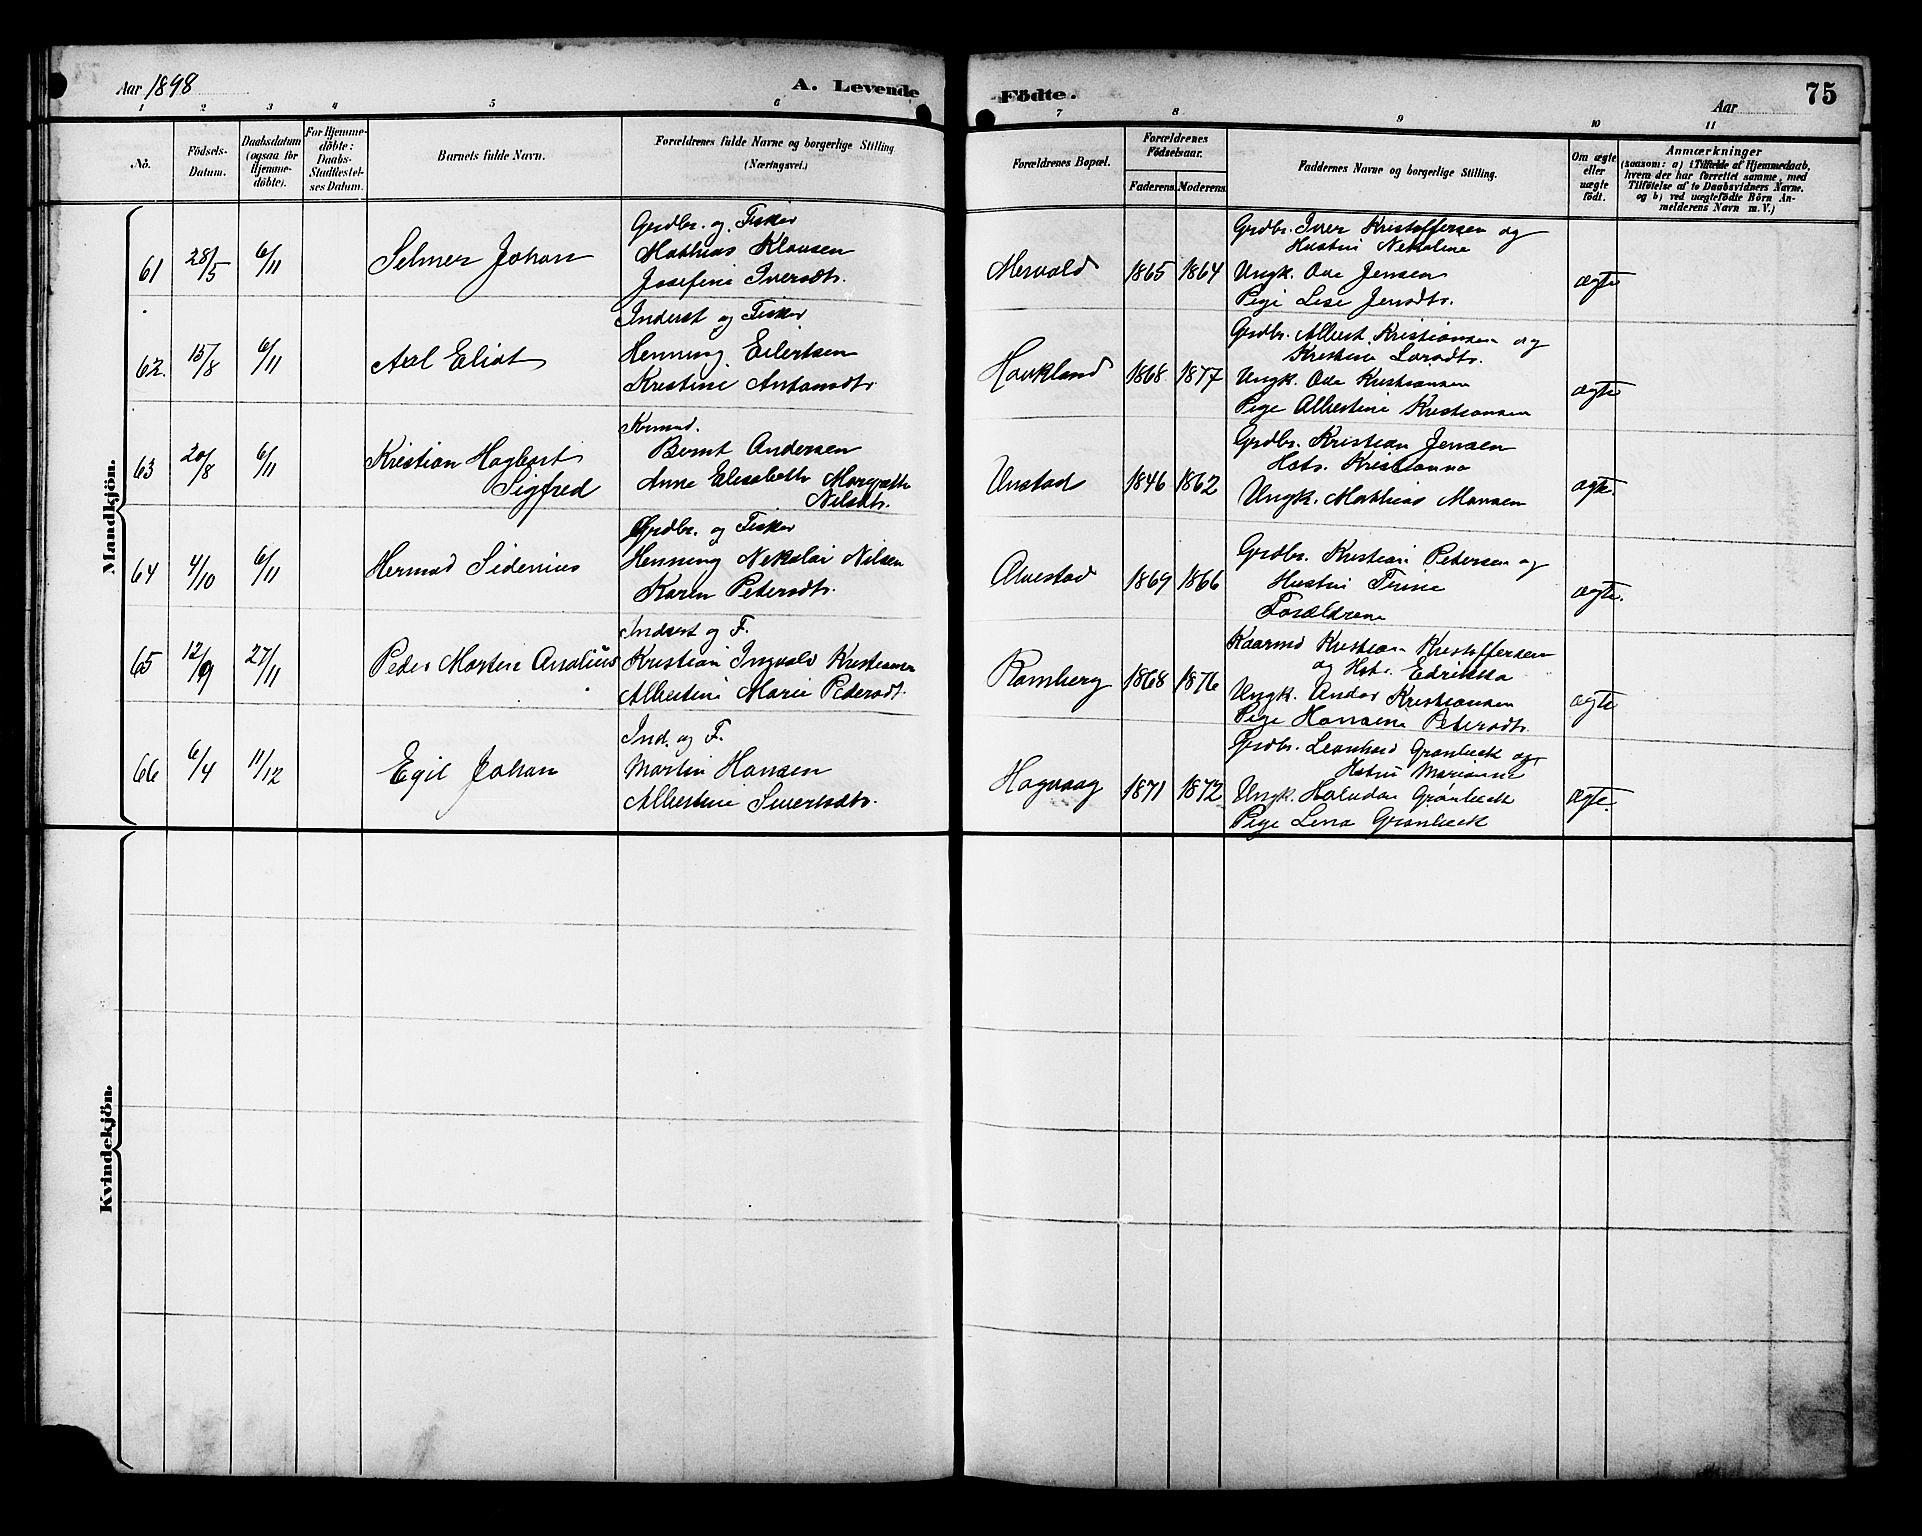 Aar 1898
A. Levende
Födte.
Aar
75
1 2 3 4 5 6 7 8 9 10 11
No.
Födsels-
Datum.
Daabsdatum
(ogsaa for
Hjemme-
döbte).
For Hjemme-
döbte:
Daabs-
Stadfæstel-
ses Datum.
Barnets fulde Navn.
Forældrenes fulde Navne og borgerlige Stilling
(Næringsvei.)
Forældrenes Bopæl.
Forældrenes
Födselsaar.
Faderens. Moderens.
Faddernes Navne og borgerlige Stilling.
Om ægte
eller
uægte
födt.
Anmærkninger
(saasom: a) i Tilfælde af Hjemmedaab,
hvem der har forrettet samme, med
Tilföielse af to Daabsvidners Navne.
og b) ved uægtefödte Börn An-
melderens Navn m.V.)
Mandkjön.
61
28/5
6/11
Selmer Johan
Grdbr. og Fisker
Mathias Klausen
Josefine Iversdtr.
Mervold
1865
1864
Grdbr. Iver Kristoffersen og
Hustru Nekoline
Ungk. Ove Jensen
Pige Lise Jensdtr.
ægte
62.
15/8
6/11
Axl Eliot
Inderst og Fisker
Henning Eilertsen
Kristine Antonsdtr.
Haukland
1868
1877
Grdbr. Albert Kristiansen og
Kristine Larsdtr.
Ungk. Ove Kristiansen
Pige Albertine Kristiansen
ægte
63
20/8
6/11
Kristian Hagbart
Sigfred
Bernt Andersen
Anne Elisabeth Margrethe
Nilsdtr.
Unstad
1846
1862
Grdbr. Kristian Jensen
Hstr. Kristianna
Ungk. Mathias Monsen
ægte.
64
4/10
6/11
Hermod Sidenius
Grdbr. og Fisker
Henning Nekolai Nilsen
Karen Petersdtr.
Alvestad
1869
1866
Grdbr. Kristian Petersen og
Hustru Trine
Forældrene
ægte.
65
12/9
27/11
Peder Martin Analius
Indserst og F.
Kristian Ingvald Kristiansen
Albertine Marie Pedersdt.
Ramberg
1868
1876
Kaarmd Kristian Kristoffersen
og Hst. Edrikka
Ungk. Andor Kristiansen
Pige Hansine Petersdtr.
ægte
66
6/4
11/12
Egil Johan
Ind. og F.
Martin Hansen
Albertine Sivertsdtr.
Hagvaag
1871
1872
Grdbr. Leonhard Grønbeck og
Hstru Marianne
Ungk. Halvdan Grønbeck
Pige Lena Grønbeck
ægte.
Kvindekjön.